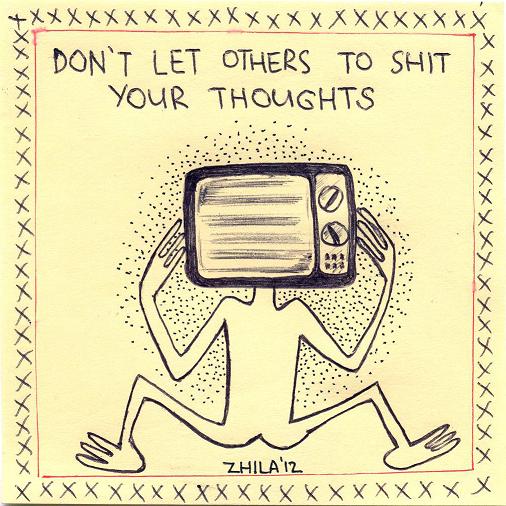 DON'T LET OTHERS TO SHIT
YOUR THOUGHTS
ZHILA'12